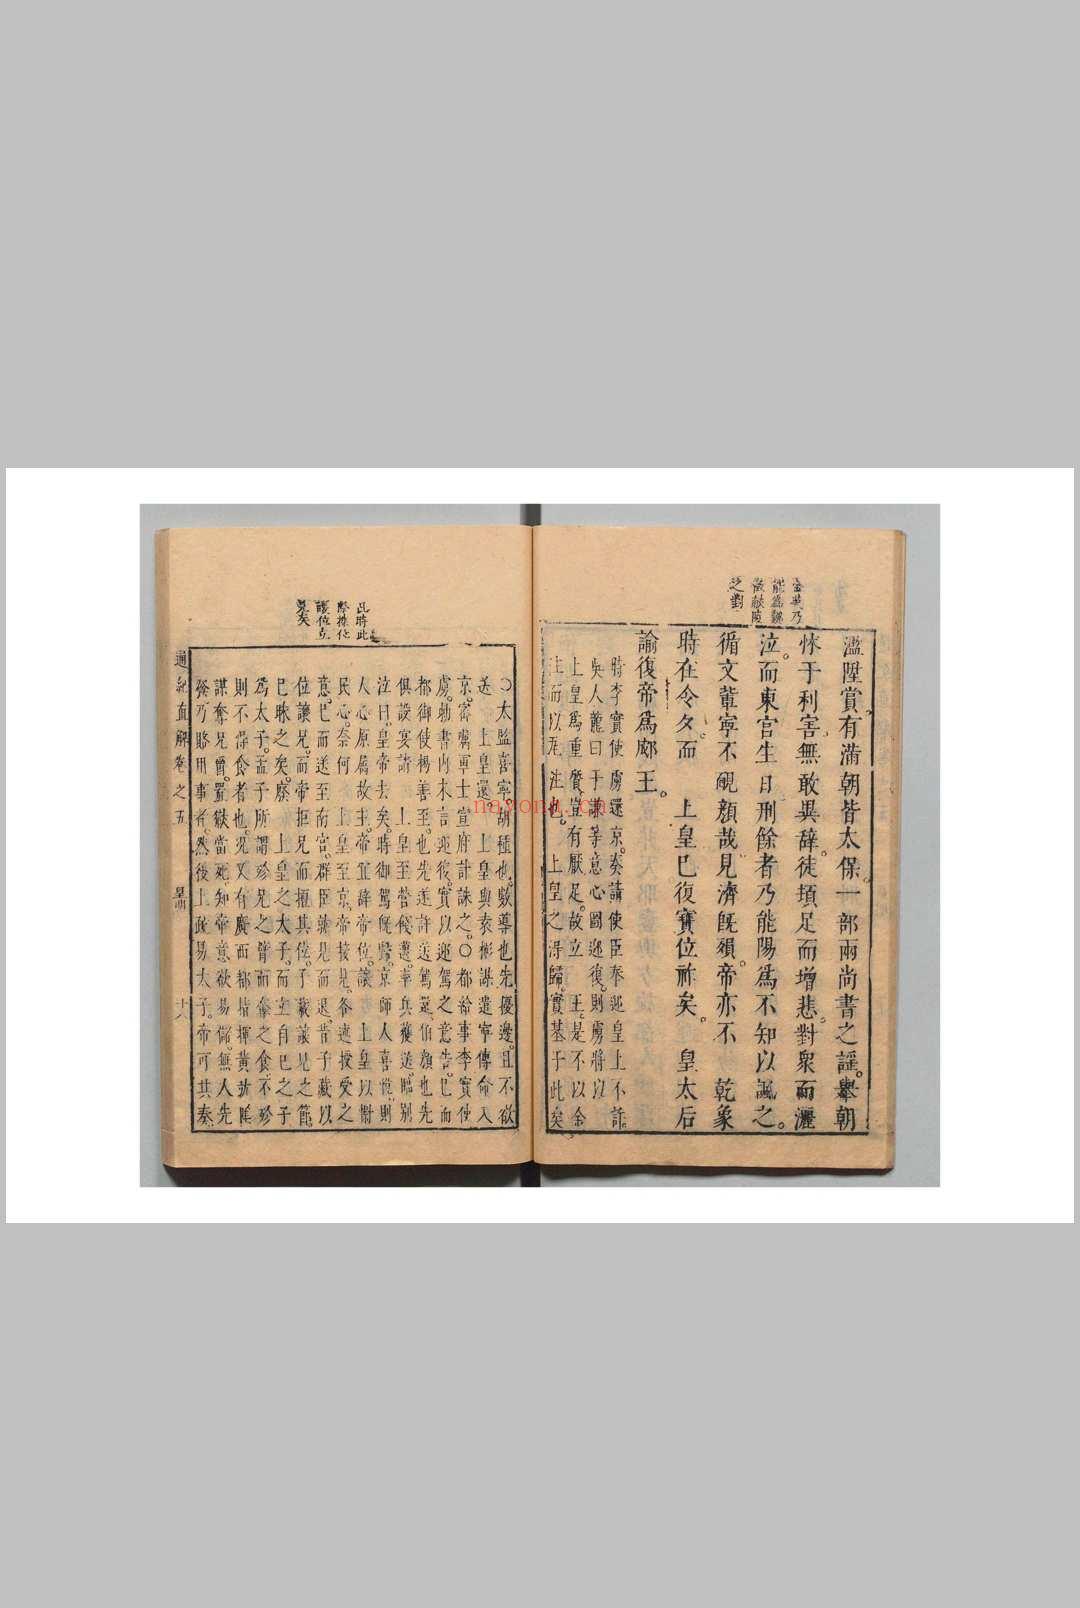 金英乃
能為魏
徵獻陵
之對
濫陞賞有滿朝皆太保一部兩尚書之謠舉朝
怵于利害無敢異辭徒頓足而增悲對衆而灑
泣而東宮生日刑餘者乃能陽為不知以諷之
循文輩寧不覥顏哉見濟旣殞帝亦不 乾象
時在令久而 上皇巳復寶位祚矣 皇太后
諭復帝為郕王
時李實使虜還京奏請使臣奉迎皇上不許
吳人龍曰于謙等意心圖迎復則虜將以
上皇為重質豈有厭足故立 王是不以余
主而以 注也 上皇之得歸實基于此矣
此時此
際推化
讓位立
見矣
○太監喜寧胡種也數導也先擾邊且不欲
送 上皇還 上皇與袁彬謀遣寧傳命入
京密屬軍士宣府計誅之○都給事李實使
虜勅書內未言迎復實以迎駕之意告巳而
都御使楊善至也先遂許送駕還伯顏也先
俱設宴請 上皇至營餞遣率兵護送臨別
泣曰皇帝去矣時御駕旣臨京師人喜惟則
人心原屬故主帝宜辭帝位讓 上皇以慰
民心奈何 上皇至京帝接見各述授受之
意巳而送至南宮群臣就見而退昔子臧以
位讓兄而帝拒兄而擅其位子臧讓兄之節
巳昧之矣廢 上皇之太子而立自巳之子
為太子孟子所謂紾兄之臂而奪之食不紾
則不得食者也況又有廣西都指揮黃玹
謀奪兄爵置獄當死知帝意欲易儲無人先
發乃賂用事者然後上疏易太子帝可其奏
通紀直解卷之五 十六